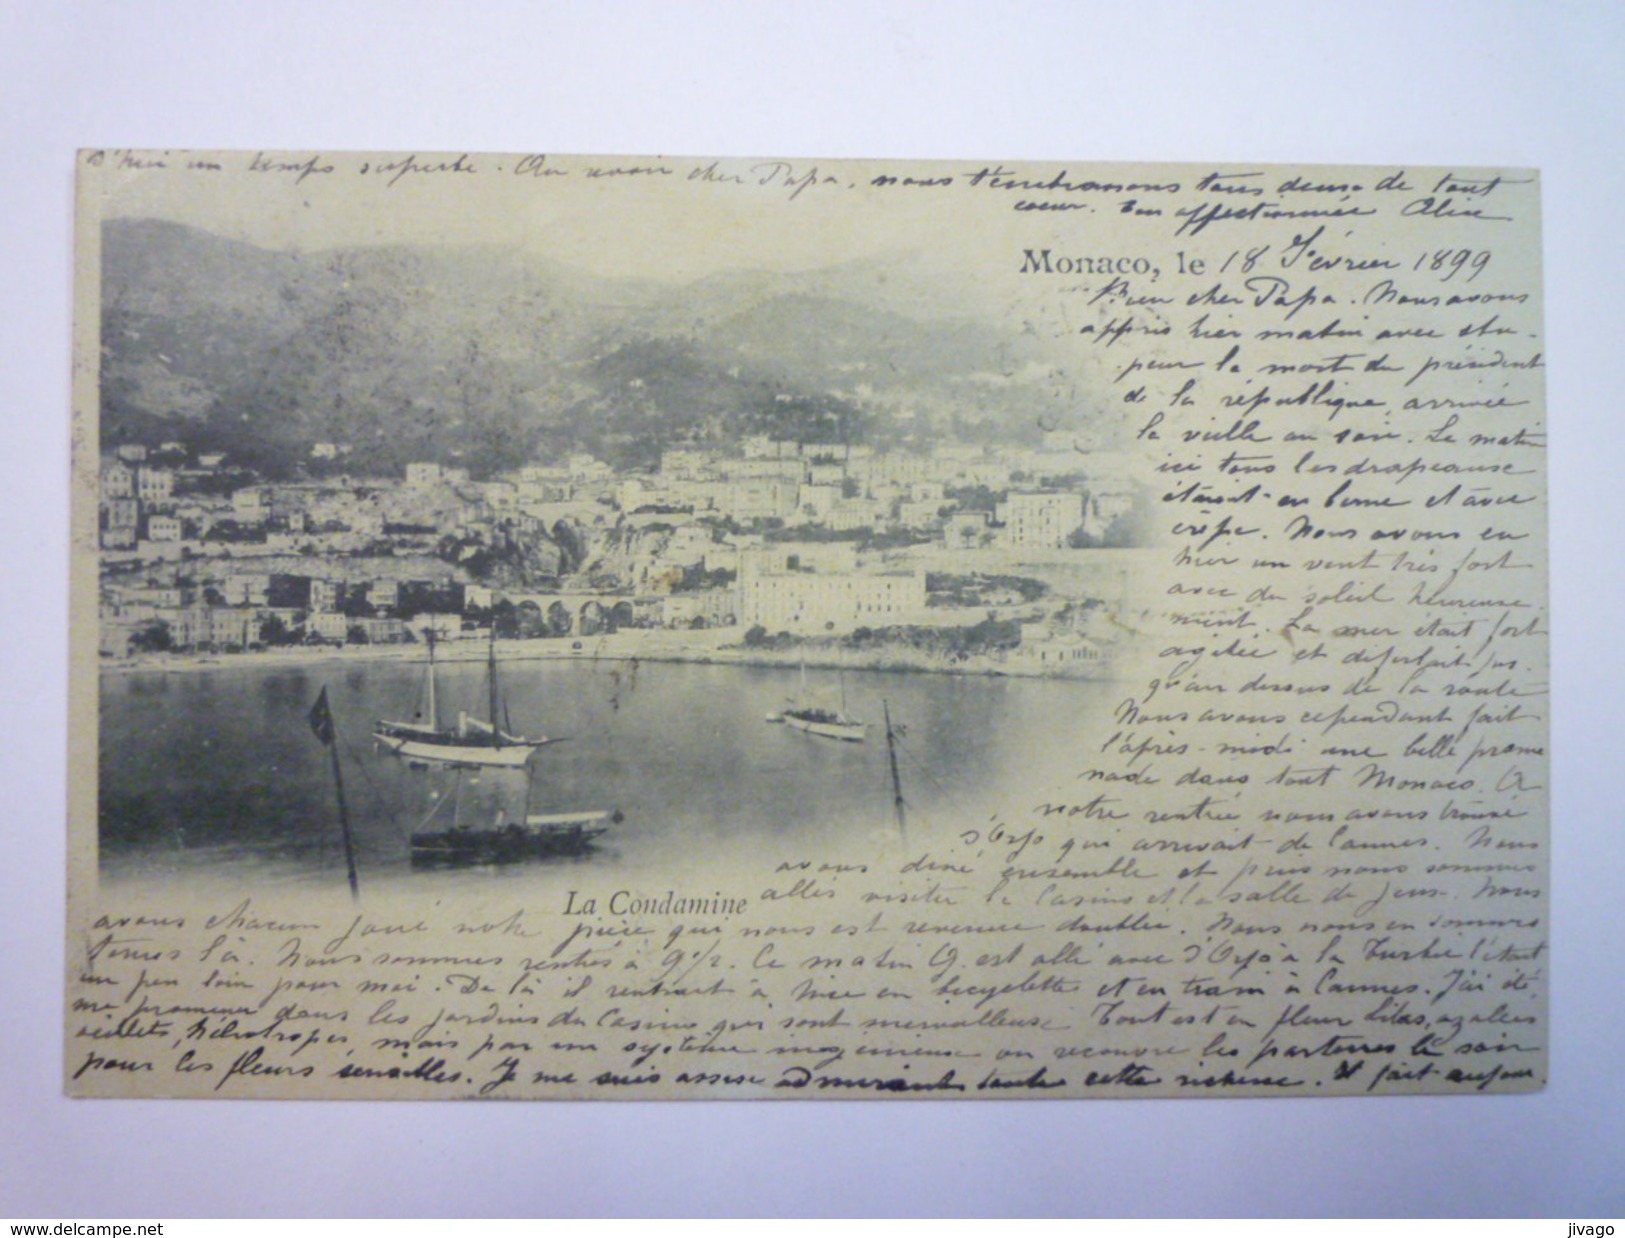 Monaco, le 18 Février 1899
Bien cher Papa. Nous avons
appris hier matin avec stu-
peur la mort du président
de la république, arrivée
la veille au soir. Le matin
ici tous les drapeaux
étaient en berne et avec
crêpe. Nous avons eu
hier un vent très fort
avec du soleil heureuse
ment. La mer était fort
agitée et déferlait jus-
qu'au dessus de la route
Nous avons cependant fait
l'après-midi une belle prome
nade dans tout Monaco. A
notre rentrée nous avons trouvé
qui arrivait de Cannes. Nous
avons diné ensemble et puis nous sommes
La Condamine
allés visiter le Casino et la salle de jeux. Nous
avons chacun joué notre pièce qui nous est revenue doublée. Nous nous en sommes
tenus là. Nous sommes rentrés à 9 1/2. Ce matin G. est allé avec à la Turbie c'était
un peu loin pour moi. De là il rentrait à Nice en bicyclette et en train à Cannes. J'ai été
me promener dans les jardins du Casino qui sont merveilleux. Tout est en fleur Lilas, azalées
oeillets, héliotropes, mais par un système ingénieux on recouvre les parterres le soir
pour les fleurs sensibles. Je me suis assise admirant toute cette richesse. Il fait aujour
D'hui un temps superbe. Au revoir cher Papa, nous t'embrassons tous deux de tout
coeur. Ton affectionnée Alix
www.delcampe.net
jivago